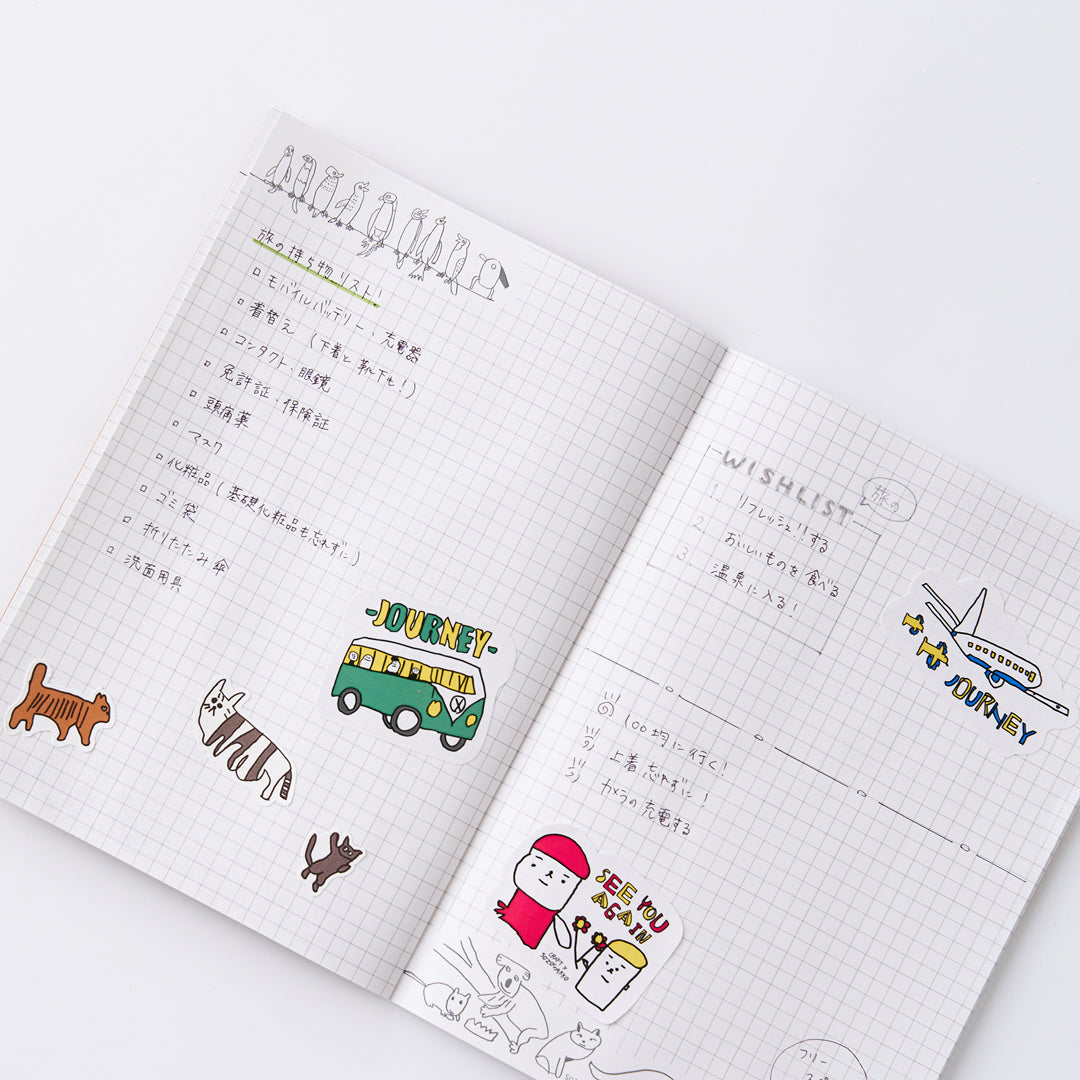 旅の持ち物リスト!
□ モバイルバッテリー・充電器
□ 着替え (下着と靴下も!)
□ コンタクト・眼鏡
□ 免許証・保険証
□ 頭痛薬
□ マスク
□ 化粧品 (基礎化粧品も忘れずに)
□ ゴミ袋
□ 折りたたみ傘
□ 洗面用具
-JOURNEY-
旅の
WISHLIST
1. リフレッシュ!!する
2. おいしいものを食べる
3. 温泉に入る!
JOURNEY
100均に行く!
上着忘れずに!
カメラの充電する
SEE YOU
AGAIN
CRAFT X
フリー